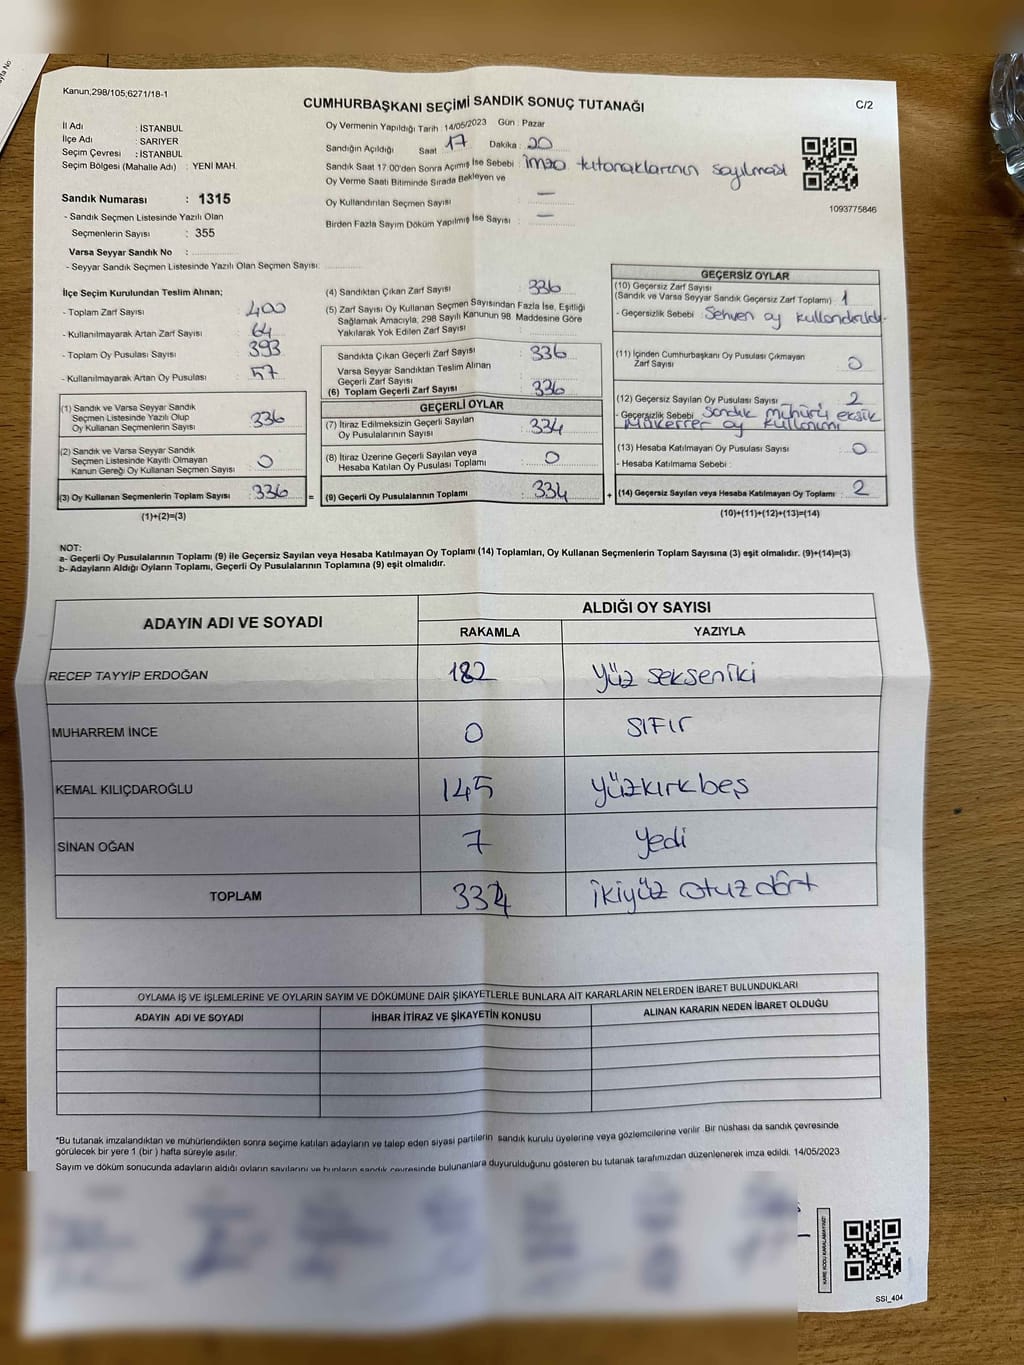 Kanun,298/105;6271/18-1
CUMHURBAŞKANI SEÇİMİ SANDIK SONUÇ TUTANAĞI
C/2
İl Adı : İSTANBUL
İlçe Adı : SARIYER
Seçim Çevresi : İSTANBUL
Seçim Bölgesi (Mahalle Adı) : YENİ MAH.
Sandık Numarası : 1315
- Sandık Seçmen Listesinde Yazılı Olan
Seçmenlerin Sayısı : 355
Varsa Seyyar Sandık No :
- Seyyar Sandık Seçmen Listesinde Yazılı Olan Seçmen Sayısı:
Oy Vermenin Yapıldığı Tarih : 14/05/2023 Gün : Pazar
Sandığın Açıldığı Saat 17 Dakika : 20
Sandık Saat 17:00'den Sonra Açımış İse Sebebi : imza tutanaklarının sayılması
Oy Verme Saati Bitiminde Sırada Bekleyen ve
Oy Kullandırılan Seçmen Sayısı : —
Birden Fazla Sayım Döküm Yapılmış İse Sayısı : —
1093775846
İlçe Seçim Kurulundan Teslim Alınan;
- Toplam Zarf Sayısı : 400
- Kullanılmayarak Artan Zarf Sayısı : 64
- Toplam Oy Pusulası Sayısı : 393
- Kullanılmayarak Artan Oy Pusulası : 57
(1) Sandık ve Varsa Seyyar Sandık
Seçmen Listesinde Yazılı Olup
Oy Kullanan Seçmenlerin Sayısı : 336
(2) Sandık ve Varsa Seyyar Sandık
Seçmen Listesinde Kayıtlı Olmayan
Kanun Gereği Oy Kullanan Seçmen Sayısı : 0
(3) Oy Kullanan Seçmenlerin Toplam Sayısı : 336 =
(1)+(2)=(3)
(4) Sandıktan Çıkan Zarf Sayısı : 336
(5) Zarf Sayısı Oy Kullanan Seçmen Sayısından Fazla İse, Eşitliği
Sağlamak Amacıyla, 298 Sayılı Kanunun 98. Maddesine Göre
Yakılarak Yok Edilen Zarf Sayısı :
Sandıkta Çıkan Geçerli Zarf Sayısı : 336
Varsa Seyyar Sandıktan Teslim Alınan
Geçerli Zarf Sayısı :
(6) Toplam Geçerli Zarf Sayısı : 336
GEÇERLİ OYLAR
(7) İtiraz Edilmeksizin Geçerli Sayılan
Oy Pusulalarının Sayısı : 334
(8) İtiraz Üzerine Geçerli Sayılan veya
Hesaba Katılan Oy Pusulası Toplamı : 0
(9) Geçerli Oy Pusulalarının Toplamı : 334 +
GEÇERSİZ OYLAR
(10) Geçersiz Zarf Sayısı
(Sandık ve Varsa Seyyar Sandık Geçersiz Zarf Toplamı) : 1
- Geçersizlik Sebebi : Sehven oy kullandırıldı.
(11) İçinden Cumhurbaşkanı Oy Pusulası Çıkmayan
Zarf Sayısı : 0
(12) Geçersiz Sayılan Oy Pusulası Sayısı : 2
- Geçersizlik Sebebi : Sandık mühürü eksik
Mükerrer oy kullanımı
(13) Hesaba Katılmayan Oy Pusulası Sayısı : 0
- Hesaba Katılmama Sebebi :
(14) Geçersiz Sayılan veya Hesaba Katılmayan Oy Toplamı : 2
(10)+(11)+(12)+(13)=(14)
NOT:
a- Geçerli Oy Pusulalarının Toplamı (9) ile Geçersiz Sayılan veya Hesaba Katılmayan Oy Toplamı (14) Toplamları, Oy Kullanan Seçmenlerin Toplam Sayısına (3) eşit olmalıdır. (9)+(14)=(3)
b- Adayların Aldığı Oyların Toplamı, Geçerli Oy Pusulalarının Toplamına (9) eşit olmalıdır.
ADAYIN ADI VE SOYADI
ALDIĞI OY SAYISI
RAKAMLA YAZIYLA
RECEP TAYYİP ERDOĞAN 182 Yüz sekseniki
MUHARREM İNCE 0 SIFIr
KEMAL KILIÇDAROĞLU 145 yüzkırkbeş
SİNAN OĞAN 7 Yedi
TOPLAM 334 ikiyüz otuzdört
OYLAMA İŞ VE İŞLEMLERİNE VE OYLARIN SAYIM VE DÖKÜMÜNE DAİR ŞİKAYETLERLE BUNLARA AİT KARARLARIN NELERDEN İBARET BULUNDUKLARI
ADAYIN ADI VE SOYADI İHBAR İTİRAZ VE ŞİKAYETİN KONUSU ALINAN KARARIN NEDEN İBARET OLDUĞU
*Bu tutanak imzalandıktan ve mühürlendikten sonra seçime katılan adayların ve talep eden siyasi partilerin sandık kurulu üyelerine veya gözlemcilerine verilir. Bir nüshası da sandık çevresinde
görülecek bir yere 1 (bir ) hafta süreyle asılır.
Sayım ve döküm sonucunda adayların aldığı oyların sayılarını ve bunların sandık çevresinde bulunanlara duyurulduğunu gösteren bu tutanak tarafımızdan düzenlenerek imza edildi. 14/05/2023
KARE KODU KARALAMAYINIZ!
SSİ_404